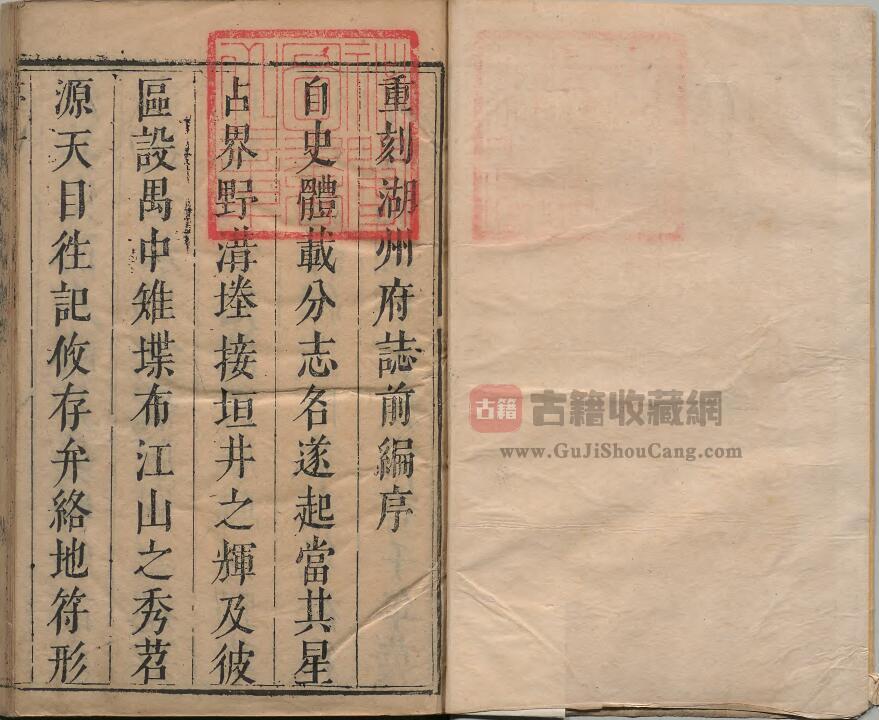 重刻湖州府誌前編序
自史體載分志名遂起當其星
占界野溝塍接垣井之輝及彼
區設禺中雉堞布江山之秀苕
源天目徃記攸存弁絡地符形
古籍
古籍收藏網
www.GuJiShouCang.com